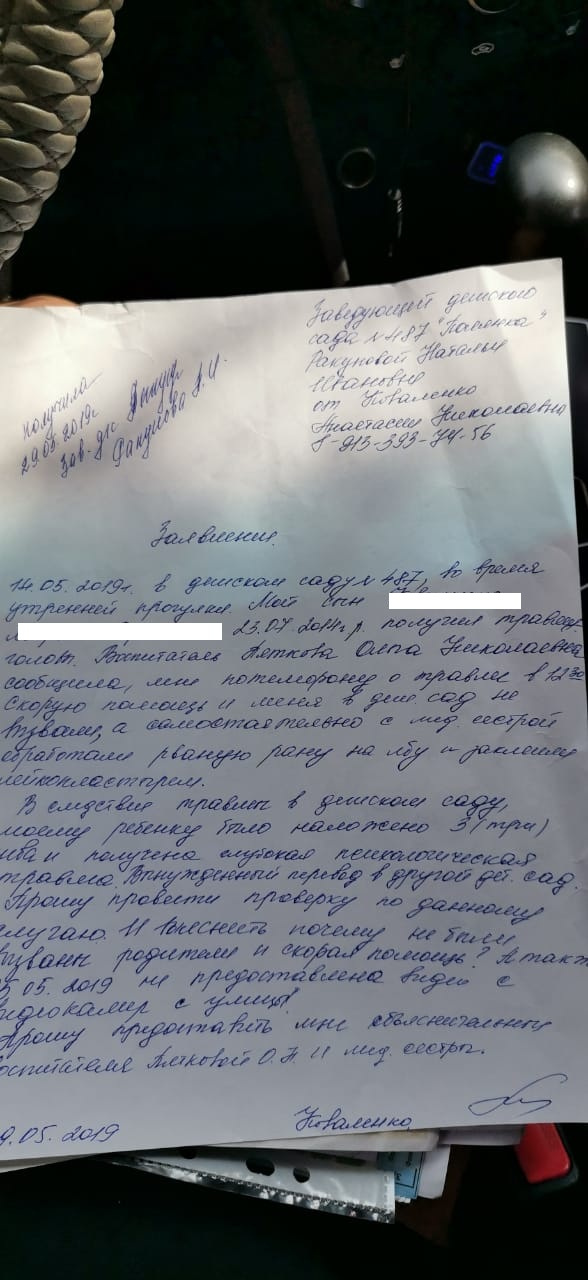 Заведующей детского
сада №487 "Полянка"
Ракуновой Натальи
Ивановны
от Коваленко
Анастасии Николаевны
8-913-393-74-56
получила
29.05.2019г
Зав. д/с
Ракунова Н.И.
Заявление.
14.05.2019г. в детском саду №487, во время
утренней прогулки. Мой сын
23.07.2014г.р. получил травму
головы. Воспитатель Пяткова Ольга Николаевна
сообщила, мне по телефону о травме в 12 30
Скорую помощь и меня в дет. сад не
вызвали, а самостоятельно с мед. сестрой
обработали рваную рану на лбу и заклеили
лейкопластырем.
В следствие травмы в детском саду,
моему ребенку было наложено 3 (три)
шва и получена глубокая психологическая
травма. Вынужденный перевод в другой дет. сад.
Прошу провести проверку по данному
случаю. И выеснеть почему не были
вызваны родители и скорая помощь? А так
5.05.2019 не предоставлена видео с
видеокамер с улицы!
Прошу предоставить мне объяснительные
воспитателя Пятковой О.Н. и мед. сестры.
9.05.2019
Коваленко